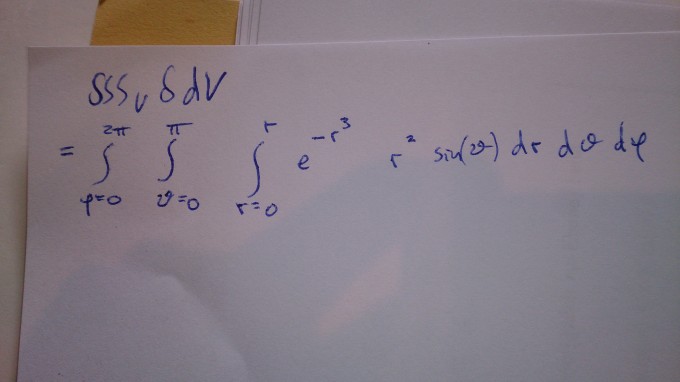 ∫∫∫_V δ dV
= ∫_{φ=0}^{2π} ∫_{ϑ=0}^{π} ∫_{r=0}^{r} e^{-r^3} r^2 sin(ϑ) dr dϑ dφ